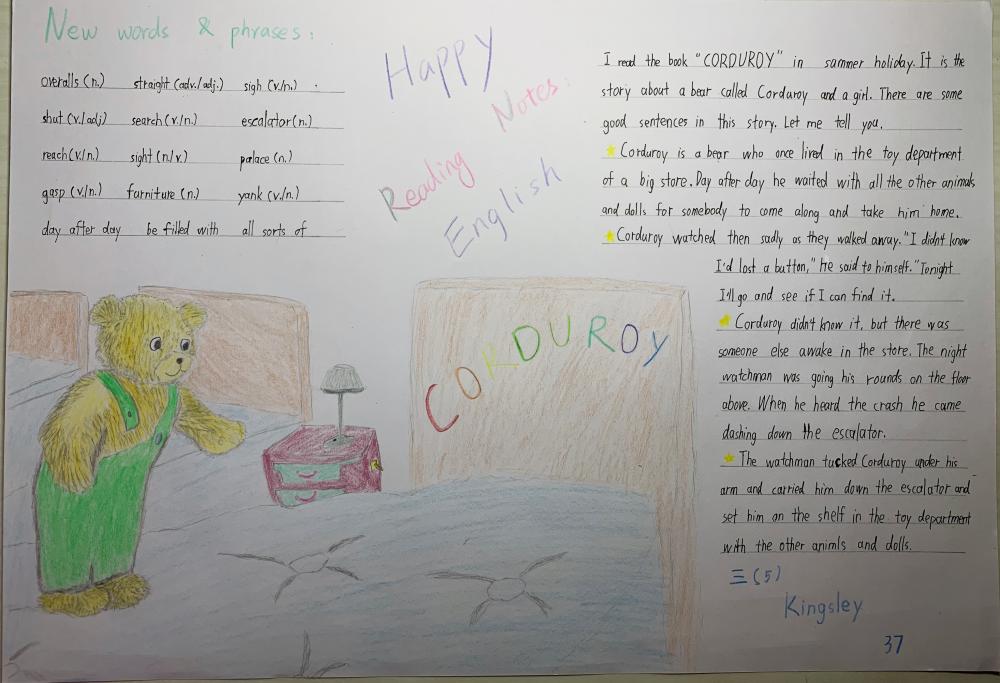 New words & phrases:
overalls (n.) straight (adv./adj.) sigh (v./n.)
shut (v./adj) search (v./n.) escalator (n.)
reach (v./n.) sight (n./v.) palace (n.)
gasp (v./n.) farniture (n.) yank (v./n.)
day after day be filled with all sorts of
Happy
Notes:
Reading
English
I read the book "CORDUROY" in sammer holiday. It is the
story about a bear called Corduroy and a girl. There are some
good sentences in this story. Let me tell you.
Corduroy is a bear who once lived in the toy department
of a big store. Day after day he waited with all the other animals
and dolls for somebody to come along and take him home.
Corduroy watched then sadly as they walked away. "I didn't know
I'd lost a button," he said to himself. "Tonight
I'll go and see if I can find it.
Corduroy didn't know it, but there was
someone else awake in the store. The night
watchman was going his rounds on the floor
above. When he heard the crash he came
dashing down the escalator.
The watchman tucked Corduroy under his
arm and carried him down the escalator and
set him on the shelf in the toy department
with the other animls and dolls.
三(5)
Kingsley
37
CORDUROY